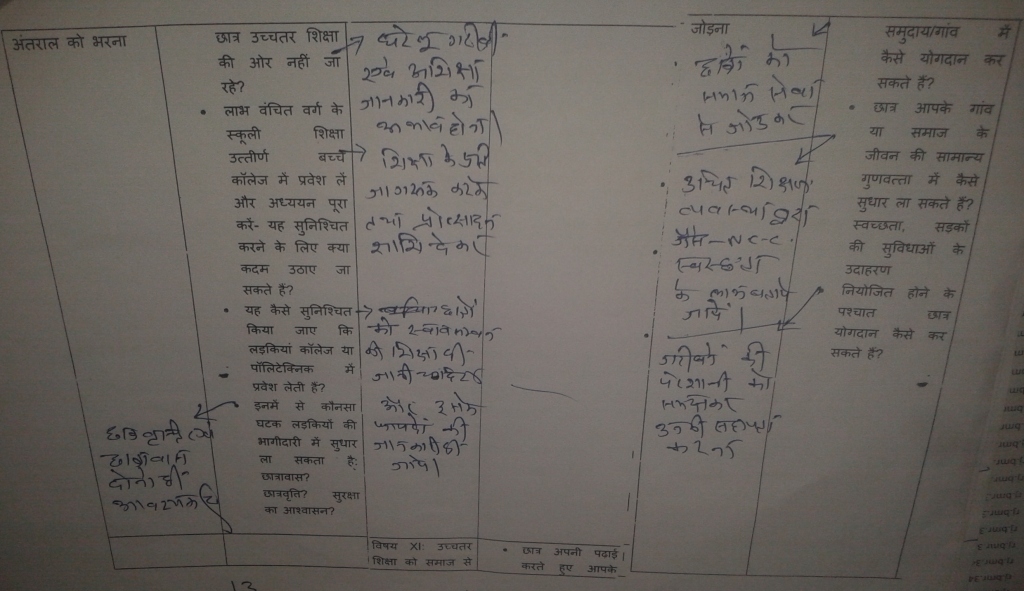 अंतराल को भरना
छात्र उच्चतर शिक्षा
की ओर नहीं जा
रहे?
• लाभ वंचित वर्ग के
स्कूली शिक्षा
उत्तीर्ण बच्चे
कॉलेज में प्रवेश लें
और अध्ययन पूरा
करें- यह सुनिश्चित
करने के लिए क्या
कदम उठाए जा
सकते हैं?
• यह कैसे सुनिश्चित
किया जाए कि
लड़कियां कॉलेज या
पॉलिटेक्निक में
प्रवेश लेती हैं?
• इनमें से कौनसा
घटक लड़कियों की
भागीदारी में सुधार
ला सकता है:
छात्रावास?
छात्रवृति? सुरक्षा
का आश्वासन?
छात्रवृत्ति एवं
छात्रावास
दोनों की
आवश्यकता
घरेलू गरीबी
एवं अशिक्षा
जानकारी का
अभाव होना
शिक्षा के प्रति
जागरूक करके
तथा प्रोत्साहन
राशि देकर
छात्रों
को
की शिक्षा दी
जानी चाहिए
और इसके
फायदों की
जानकारी दी
जाये।
विषय XI: उच्चतर
शिक्षा को समाज से
• छात्र अपनी पढ़ाई
करते हुए आपके
जोड़ना
• छात्रों को
समाज सेवा
से जोड़कर
• उचित शिक्षण
व्यवस्था द्वारा
जैसे - N.C.C.
• स्वच्छता
के लाभ बताये
जायें।
• गरीबों की
परेशानी को
समझकर
उनकी सहायता
करना
समुदाय/गांव में
कैसे योगदान कर
सकते हैं?
• छात्र आपके गांव
या समाज के
जीवन की सामान्य
गुणवत्ता में कैसे
सुधार ला सकते हैं?
स्वच्छता, सड़कों
की सुविधाओं के
उदाहरण
• नियोजित होने के
पश्चात छात्र
योगदान कैसे कर
सकते हैं?
13